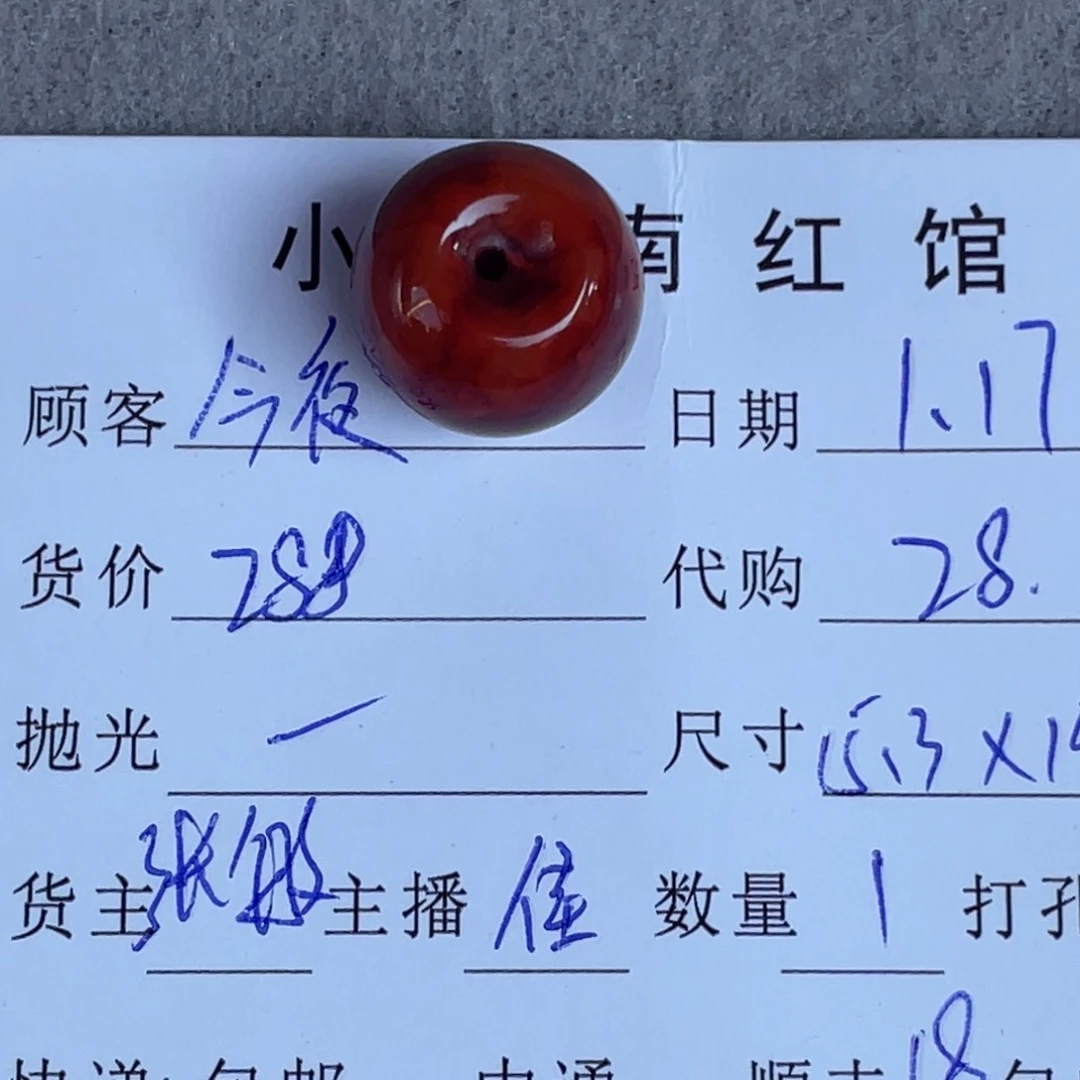 小 南红馆
顾客 今夜 日期 1.17
货价 288 代购 28.
抛光 一 尺寸 15.3×1
货主 张敏 主播 佳 数量 1 打孔
快递: 包邮 申通 顺丰 18 包